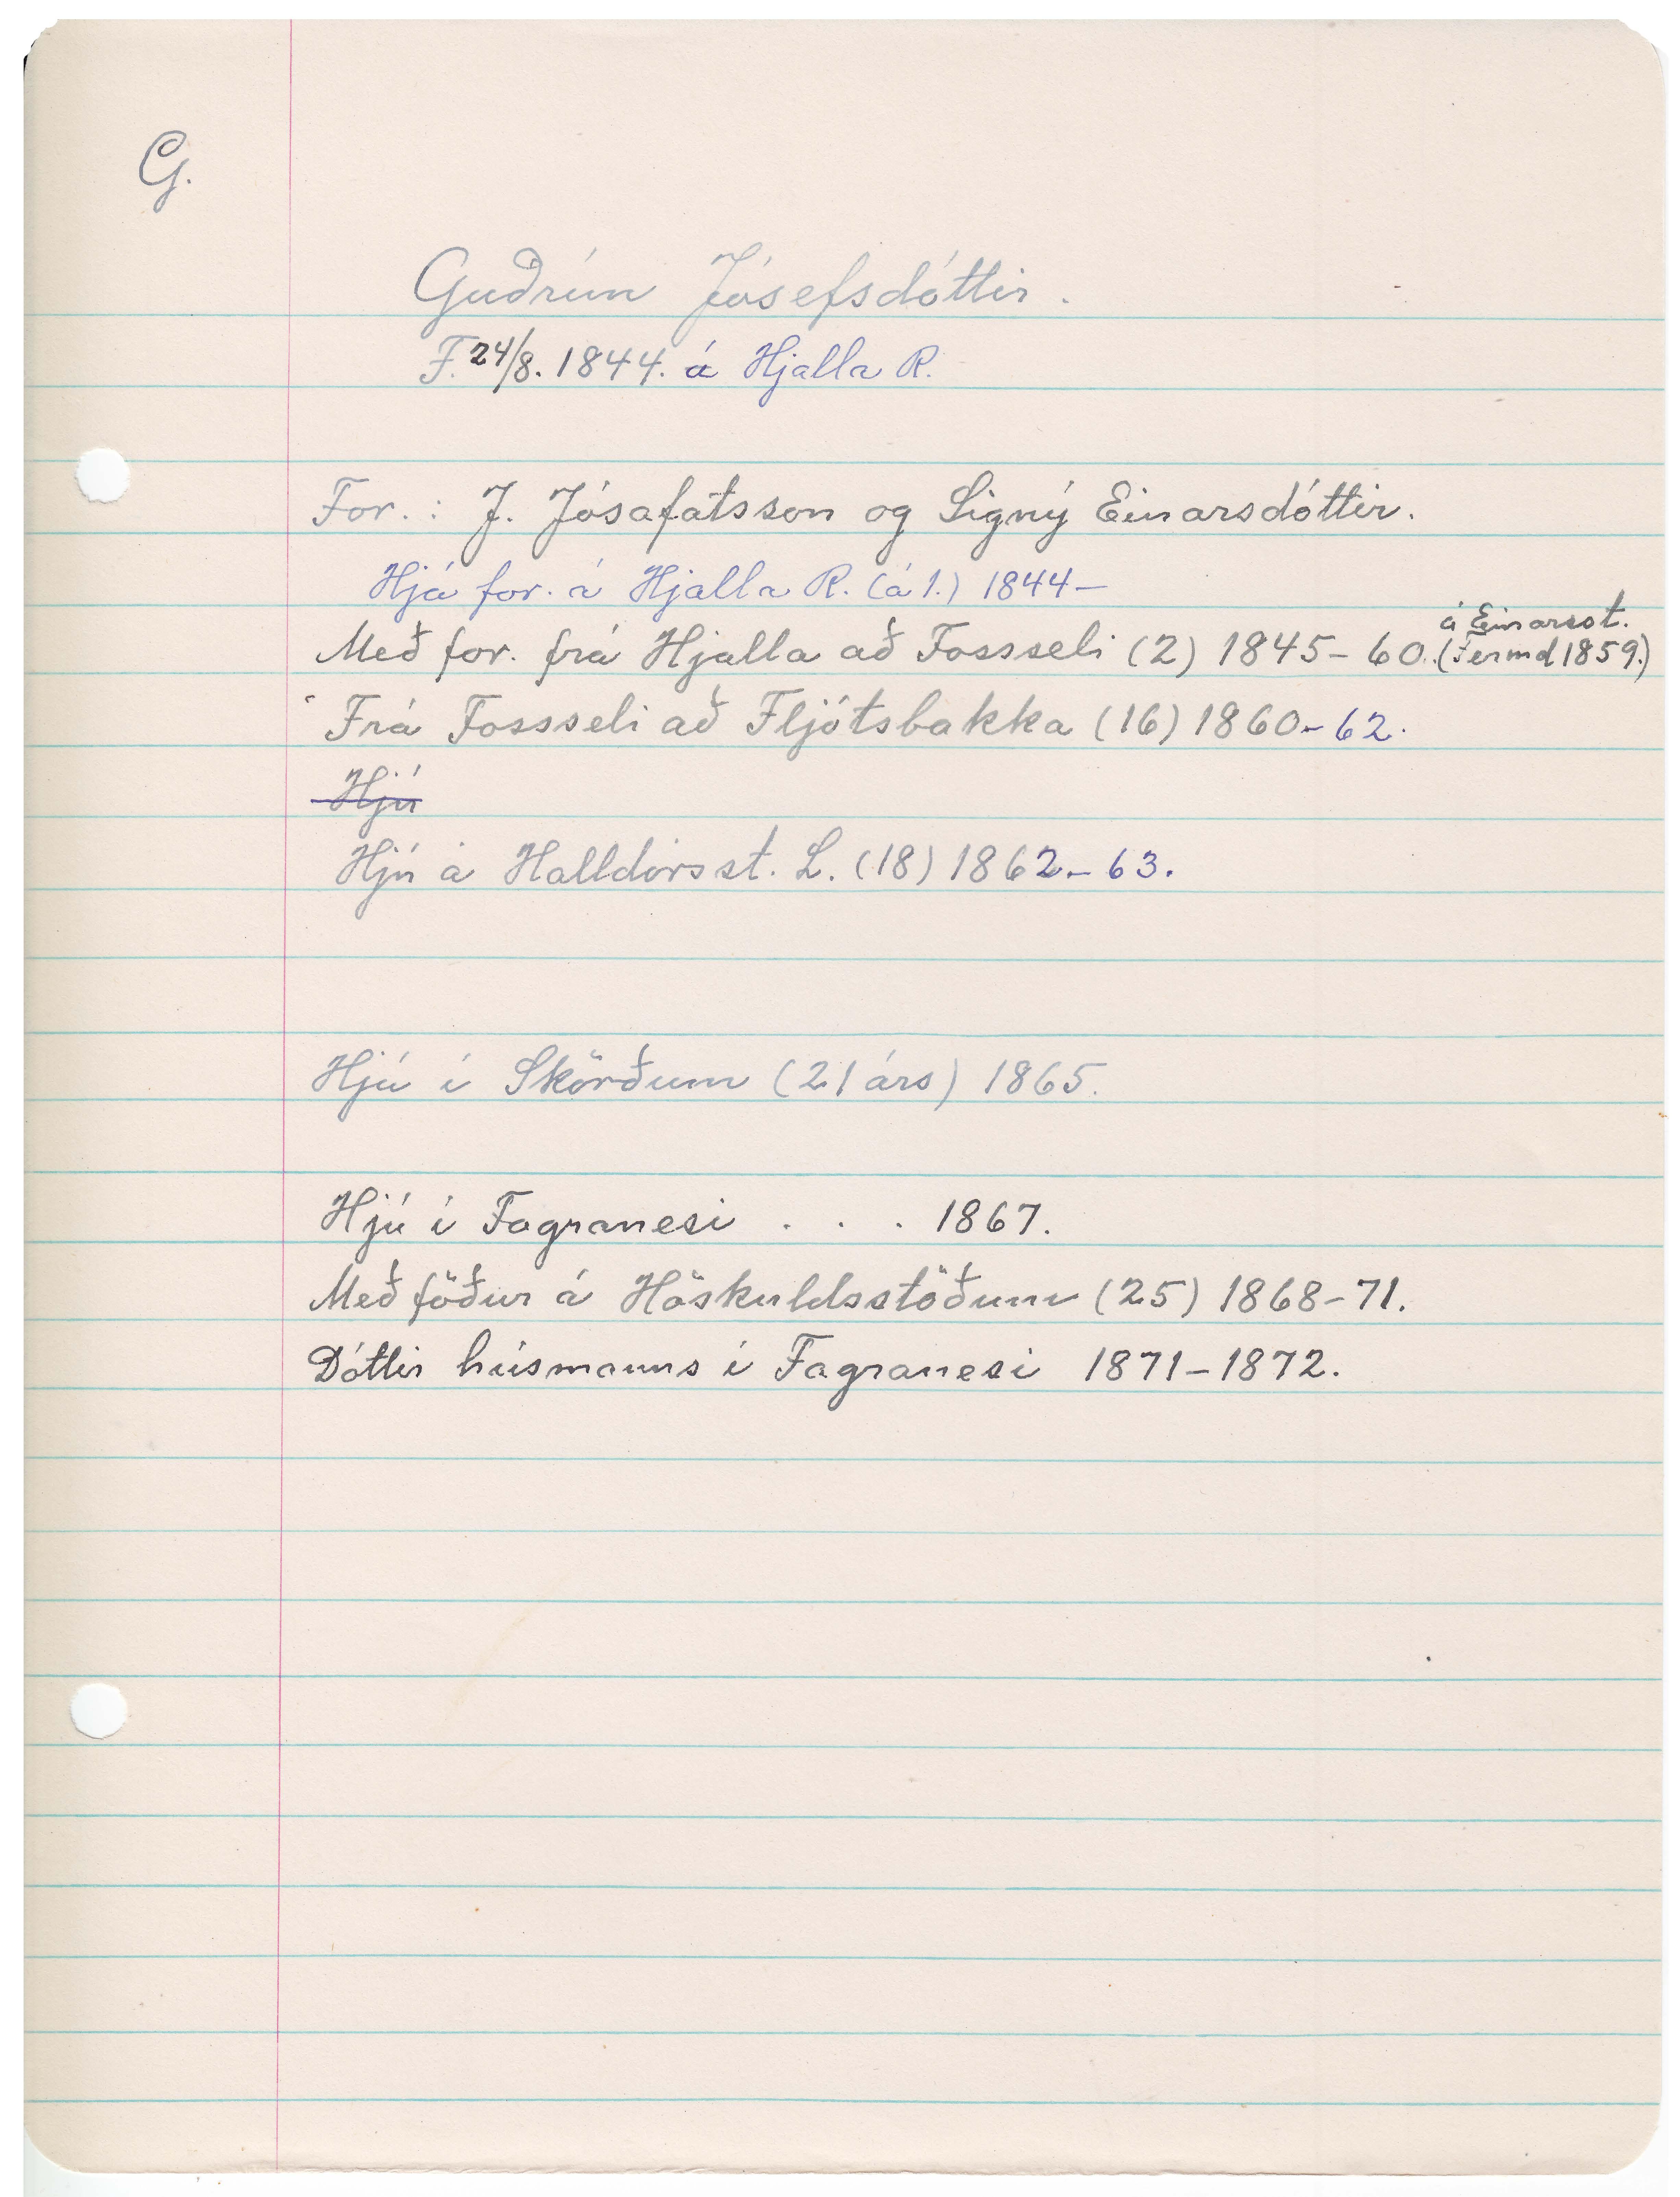 G.
Guðrún Jósefsdóttir.
F. 24/8. 1844. á Hjalla R.
For.: J. Jósafatsson og Signý Einarsdóttir.
Hjá for. á Hjalla R. (á 1.) 1844–
á Einarsst.
Með for. frá Hjalla að Fossseli (2) 1845–60. (Fermd 1859.)
Frá Fossseli að Fljótsbakka (16) 1860–62.
Hjú
Hjú á Halldórsst. L. (18) 1862–63.
Hjú í Skörðum (21 árs) 1865.
Hjú í Fagranesi . . . 1867.
Með föður á Höskuldsstöðum (25) 1868–71.
Dóttir húsmanns í Fagranesi 1871–1872.